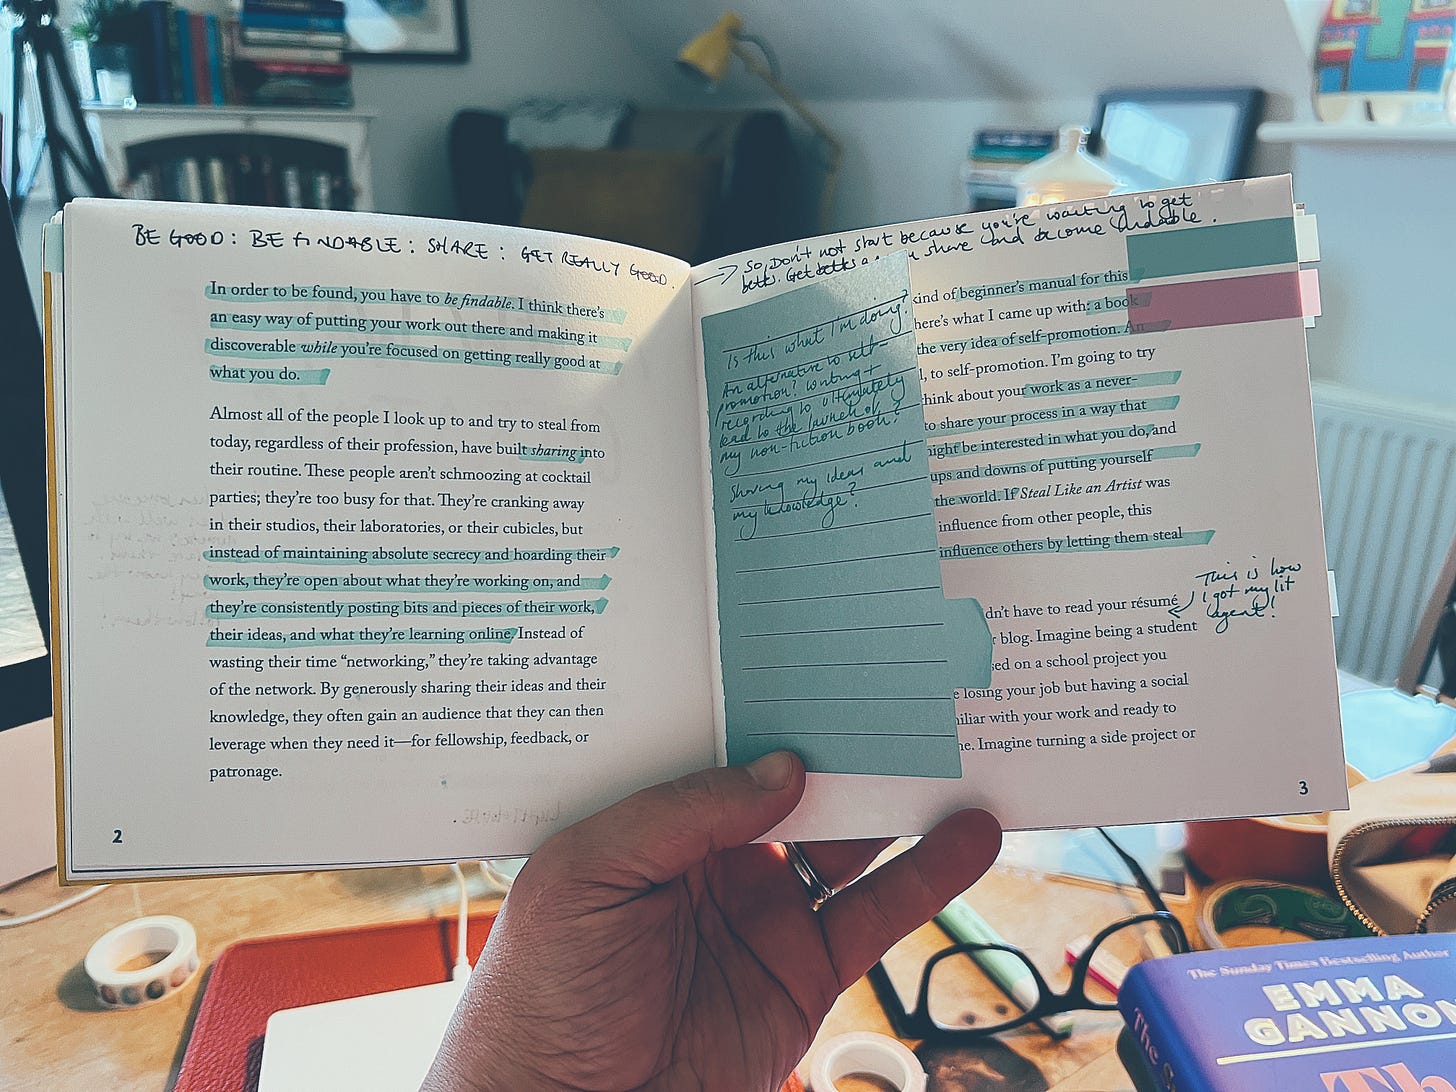 BE GOOD: BE FINDABLE: SHARE: GET REALLY GOOD.
In order to be found, you have to be findable. I think there's
an easy way of putting your work out there and making it
discoverable while you're focused on getting really good at
what you do.
Almost all of the people I look up to and try to steal from
today, regardless of their profession, have built sharing into
their routine. These people aren't schmoozing at cocktail
parties; they're too busy for that. They're cranking away
in their studios, their laboratories, or their cubicles, but
instead of maintaining absolute secrecy and hoarding their
work, they're open about what they're working on, and
they're consistently posting bits and pieces of their work,
their ideas, and what they're learning online. Instead of
wasting their time “networking,” they're taking advantage
of the network. By generously sharing their ideas and their
knowledge, they often gain an audience that they can then
leverage when they need it—for fellowship, feedback, or
patronage.
2
→ So, Don't not start because you're waiting to get
share and become findable.
Is this what I'm doing?
An alternative to self-
promotion? Writing +
recording to ultimately
lead to the launch of
my non-fiction book?
Sharing my ideas and
my knowledge?
kind of beginner's manual for this
here's what I came up with: a book
the very idea of self-promotion. An
, to self-promotion. I'm going to try
think about your work as a never-
to share your process in a way that
might be interested in what you do, and
ups and downs of putting yourself
the world. If Steal Like an Artist was
influence from other people, this
influence others by letting them steal
This is how
I got my lit
agent!
dn't have to read your résumé
blog. Imagine being a student
sed on a school project you
losing your job but having a social
miliar with your work and ready to
Imagine turning a side project or
3
The Sunday Times Bestselling Author
EMMA
GANNON
The